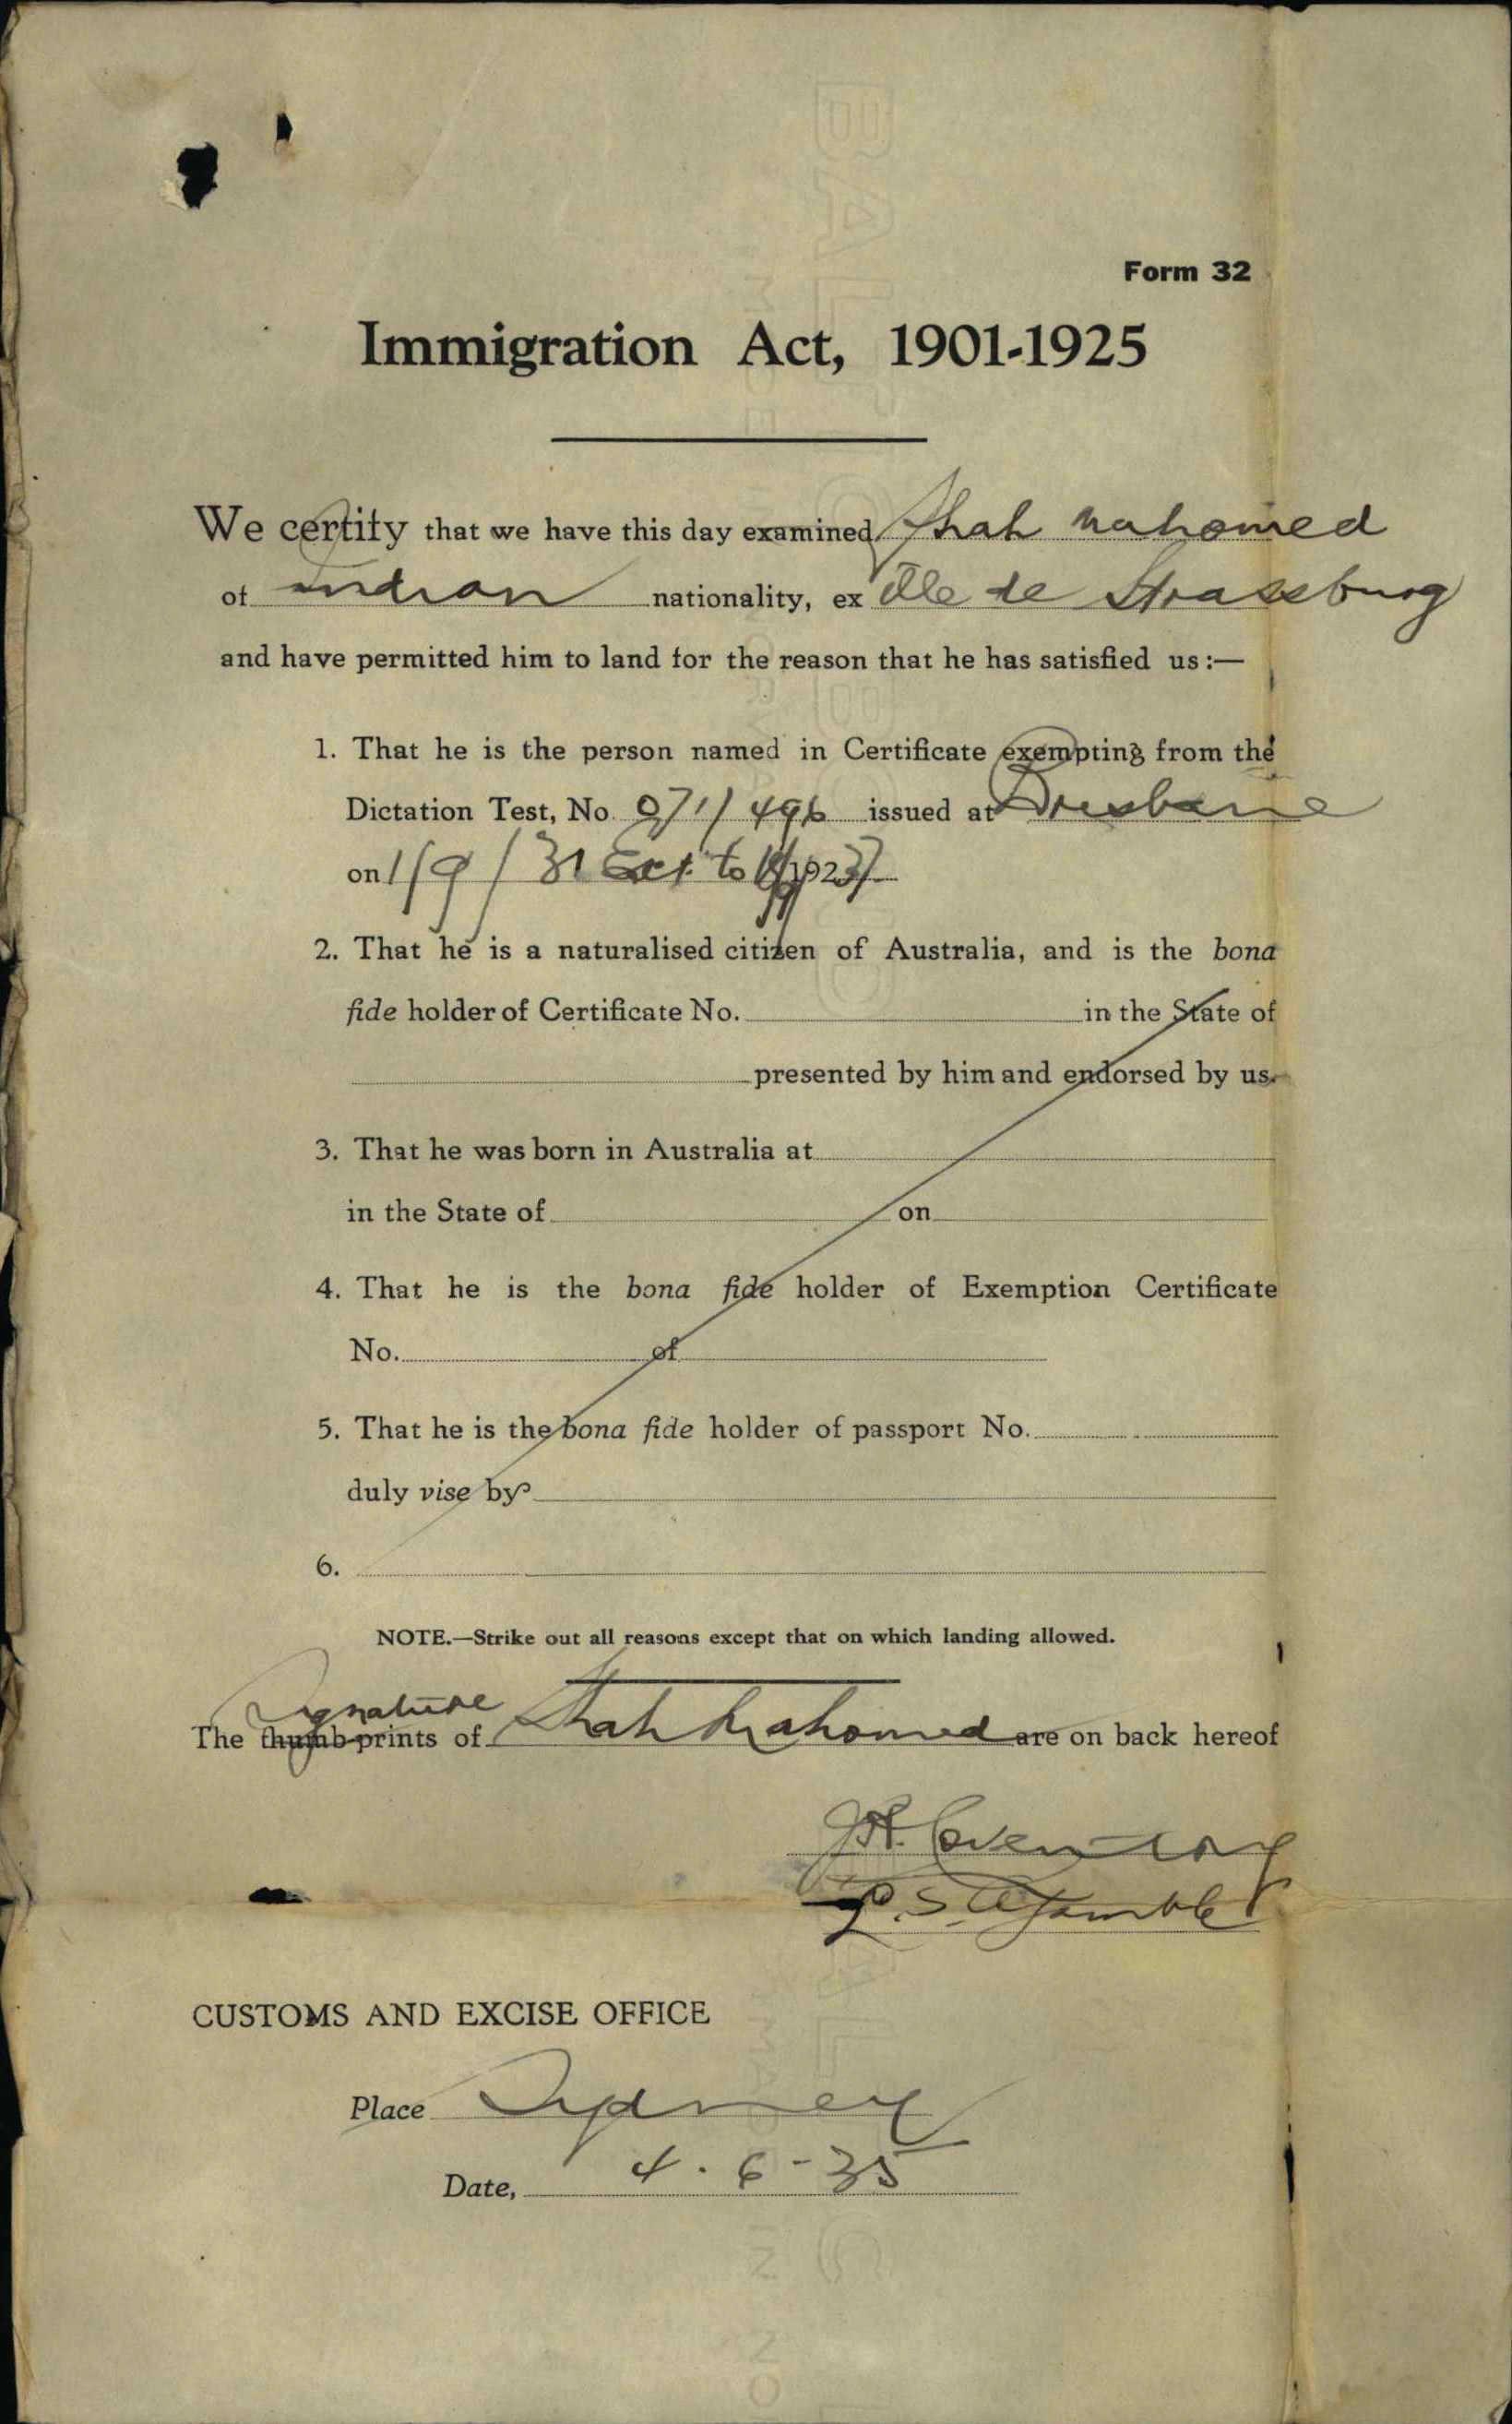 Form 32
Immigration Act, 1901-1925
We certify that we have this day examined Shah Mahomed
of Indian nationality, ex Ville de Strassburg
and have permitted him to land for the reason that he has satisfied us:—
1. That he is the person named in Certificate exempting from the
Dictation Test, No. 071/496 issued at Brisbane
on 1/9/31 Ext. to
2. That he is a naturalised citizen of Australia, and is the bona
fide holder of Certificate No. in the State of
presented by him and endorsed by us.
3. That he was born in Australia at
in the State of on
4. That he is the bona fide holder of Exemption Certificate
No. of
5. That he is the bona fide holder of passport No.
duly vise by
6.
NOTE.—Strike out all reasons except that on which landing allowed.
Signature
The thumb-prints of Shah Mahomed are on back hereof
CUSTOMS AND EXCISE OFFICE
Place Sydney
Date, 4.6-35